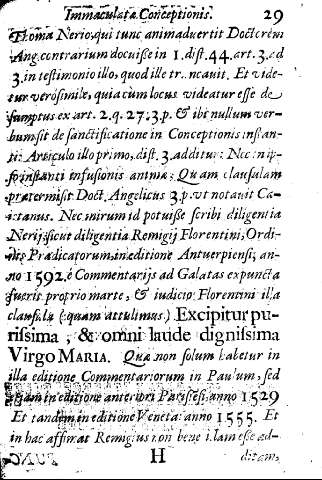 Immaculatæ Conceptionis. 29
Thoma Nerio, qui tunc animadvertit Doctorem
Ang. contrarium docuisse in 1. dist. 44. art. 3. ad
3. in testimonio illo, quod ille truncauit. Et vide-
tur verosimile, quia cùm locus videatur esse de
sumptus ex art. 2. q. 27. 3. p. & ibi nullum ver-
bum sit de sanctificatione in Conceptionis instan-
ti: Articulo illo primo, dist. 3. additur: Nec in ip-
so instanti infusionis animæ; Quam clausulam
prætermisit Doct. Angelicus 3. p. vt notauit Ca-
ietanus. Nec mirum id potuisse scribi diligentia
Nerij, sicut diligentia Remigij Florentini, Ordi-
nis Prædicatorum in editione Antuerpiensi, an-
no 1592. è Commentarijs ad Galatas expuncta
fueris proprio marte, & iudicio Florentini illa
clausula (quam attulimus) Excipitur pu-
rissima, & omni laude dignissima
Virgo MARIA. Quæ non solum habetur in
illa editione Commentariorum in Paulum, sed
etiam in editione anteriori Parisiesi anno 1529
Et tandem in editione Veneta anno 1555. Et
in hac affirmat Remigius non bene illam esse ad-
H ditam,